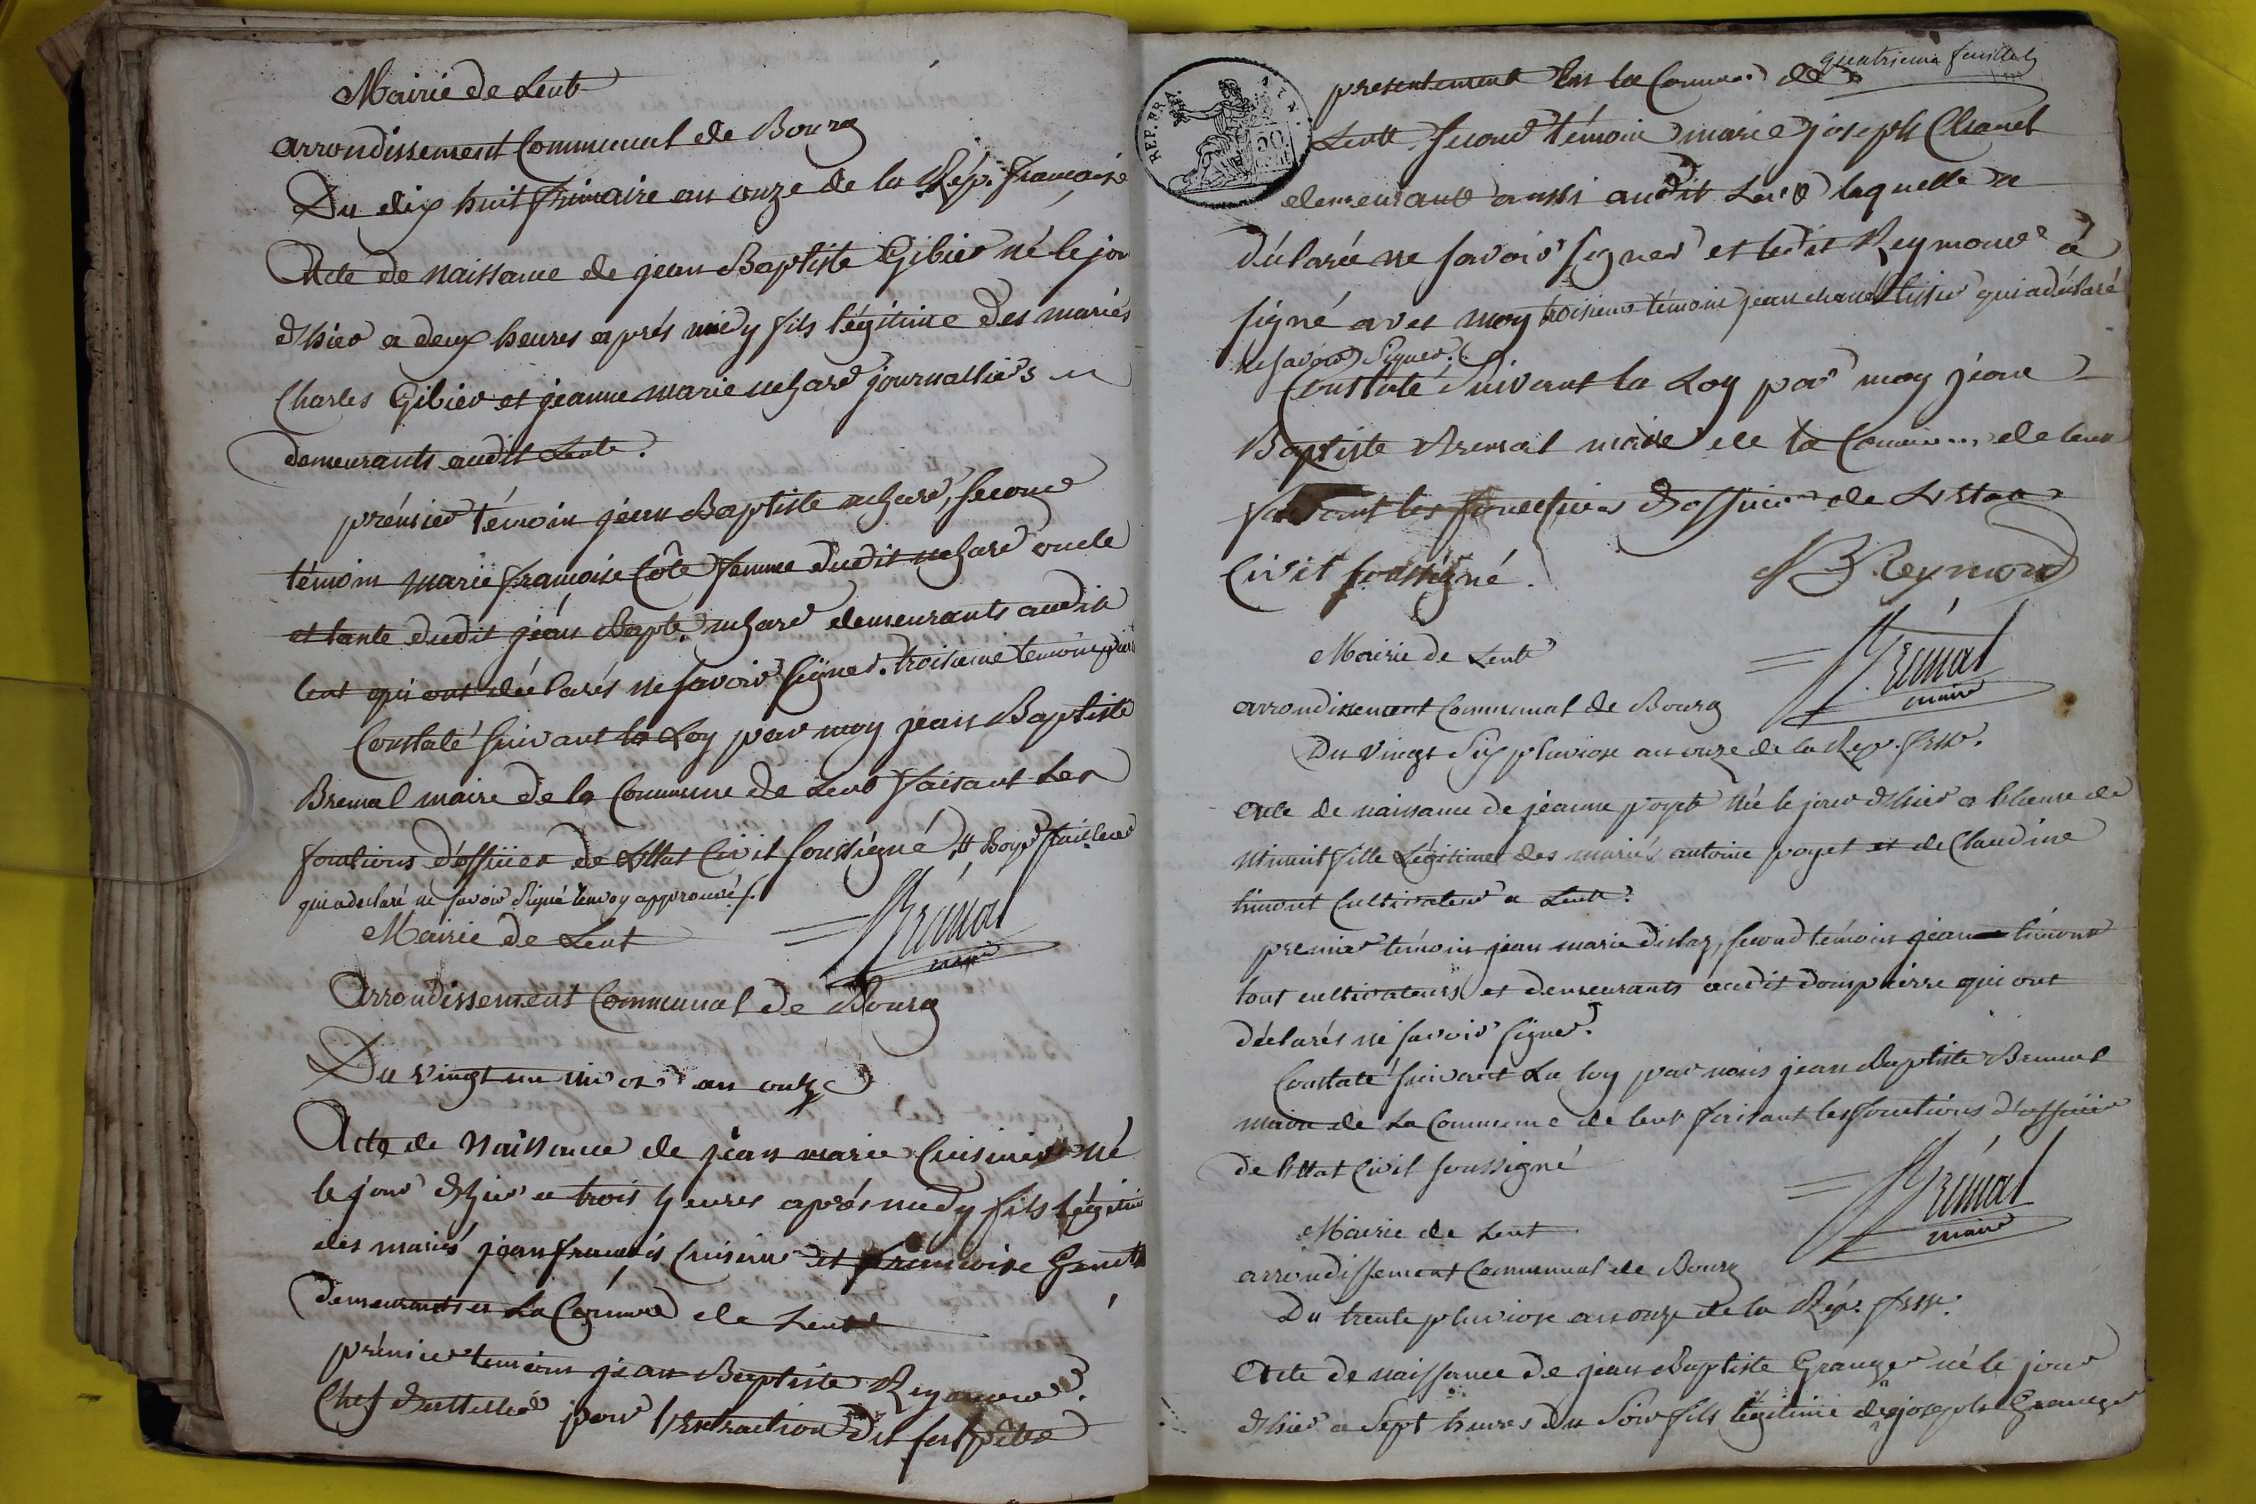 Mairie de Lent
arrondissement Communal de Bourg
Du dix huit frimaire an onze de la Rép. française
Acte de naissance de jean Baptiste Gibier né le jou
d'hier a deux heures après midy fils légitime des mariés
Charles Gibier et jeanne marie journalliers
demeurants audit Lent.
prémier témoin jean Baptiste second
témoin marie françoise Côte femme dudit oncle
et tante dudit jean Bapte. demeurants audit
lent qui ont déclarés ne savoir signer. troisieme temoin
Constaté suivant la Loy par moy jean Baptiste
Bremal maire de la Commune de Lent faisant Les
fonctions d'officier de L'Etat Civil soussigné
qui a declaré ne savoir signé renvoy approuvé
Brémal
maire
Mairie de Lent
Arrondissement Communal de Bourg
Du vingt un nivose an onze
Acte de Naissance de jean marie Cuisinier né
le jour d'hier a trois heures après midy fils légitim
des mariés jean françois Cuisinier et françoise
demeurants en La Commune de Lent
prémier temoin jean Baptiste Reymond
Chef pour l'Extraction du
REP. FRA.
50
quatrieme feuillet
presentement en la Commune de
Lent second témoin marie joseph Chanel
demeurant aussi audit Lent laquelle a
déclarée ne savoir signer et ledit Reymond a
signé avec moy troisieme témoin jean chanel tissier qui a déclaré
ne savoir signer.
Constaté suivant la Loy par moy jean
Baptiste Bremal maire de la Commune de lent
faisant les fonctions d'officier de L'Etat
Civil soussigné.
JB Reymond
Brémal
maire
Mairie de Lent
arrondissement Communal de Bourg
Du vingt six pluviose an onze de la Rep. frse.
Acte de naissance de jeanne poyet Née le jour d'hier a l'heure de
minuit fille Légitime des mariés antoine poyet et de Claudine
Cultivateur a Lent.
premier témoin jean marie second témoin jean
tous cultivateurs et demeurants audit dompierre qui ont
déclarés ne savoir signer.
Constaté suivant La loy par nous jean Baptiste Bremal
maire de La Commune de lent faisant les fonctions d'officier
de l'Etat Civil soussigné
Brémal
maire
Mairie de Lent
arrondissement Communal de Bourg
Du trente pluviose an onze de la Rép. frse.
Acte de naissance de jean Baptiste Granger né le jour
d'hier a sept heures du soir fils légitime de joseph Granger